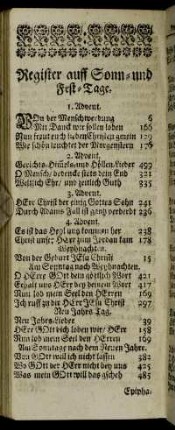 Register auff Sonn- und
Fest-Tage.
1. Advent.
Von der Menschwerdung 6
Mit Danck wir sollen loben 166
Nun freut euch lieben Christen gemein 129
Wie schön leuchtet der Morgenstern 176
2. Advent.
Gerichts- Himels- und Höllen-Lieder 499
O Mensch bedencke stets dein End 321
Weltlich Ehr und zeitlich Guth 335
3. Advent.
HErr Christ der einig Gottes Sohn 241
Durch Adams Fall ist gantz verderbt 236
4. Advent.
Es ist das Heyl uns kommen her 238
Christ unser HErr zum Jordan kam 178
Weyhnachten.
Von der Geburt JEsu Christi 15
Am Sonntag nach Weyhnachten.
O HErre GOtt dein göttlich Wort 421
Erhalt uns HErr bey deinem Wort 417
Nun lob mein Seel den HErren 169
Ich ruff zu dir HErr JEsu Christ 297
Neu Jahrs-Tag.
Neu Jahrs-Lieder 39
HErr GOtt dich loben wir/ HErr 158
Nun lob mein Seel den HErren 169
Am Sonntage nach dem Neuen Jahre.
Von GOtt will ich nicht lassen 382
Wo GOtt der HErr nicht bey uns 425
Was mein GOtt will das gscheh 485
Epipha-